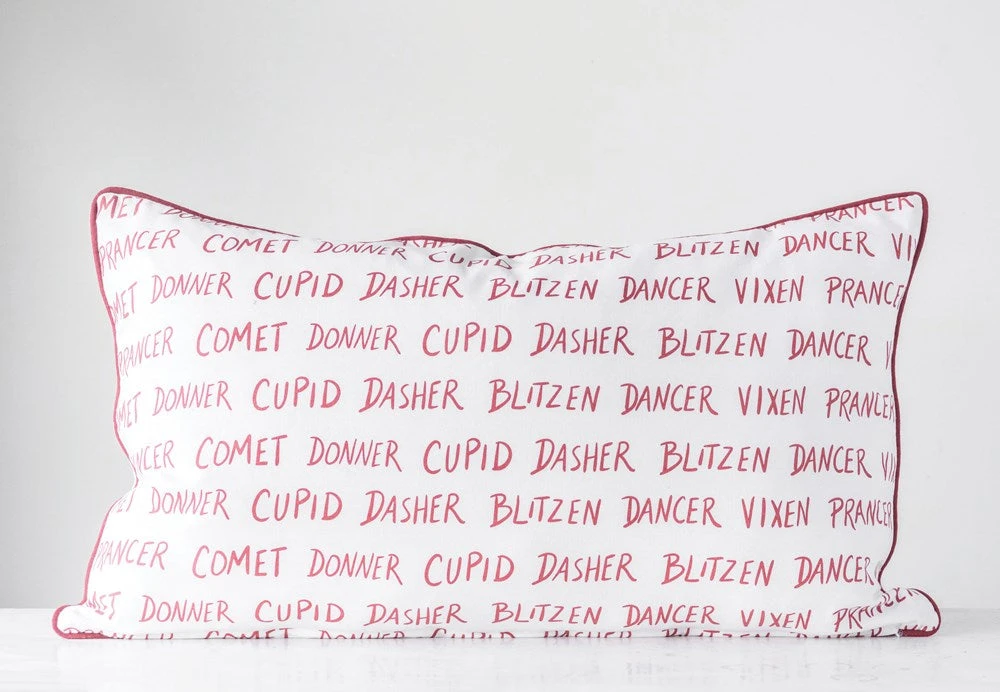 MET
PRANCER
PRANCER COMET DONNER CUPID DASHER BLITZEN DANCER VI
MET DONNER CUPID DASHER BLITZEN DANCER VIXEN PRANCE
PRANCER COMET DONNER CUPID DASHER BLITZEN DANCER V
MET DONNER CUPID DASHER BLITZEN DANCER VIXEN PRANCER
NCER COMET DONNER CUPID DASHER BLITZEN DANCER VI
ET DONNER CUPID DASHER BLITZEN DANCER VIXEN PRANCER
PRANCER COMET DONNER CUPID DASHER BLITZEN DANCER
MET DONNER CUPID DASHER BLITZEN DANCER VIXEN PRANCER